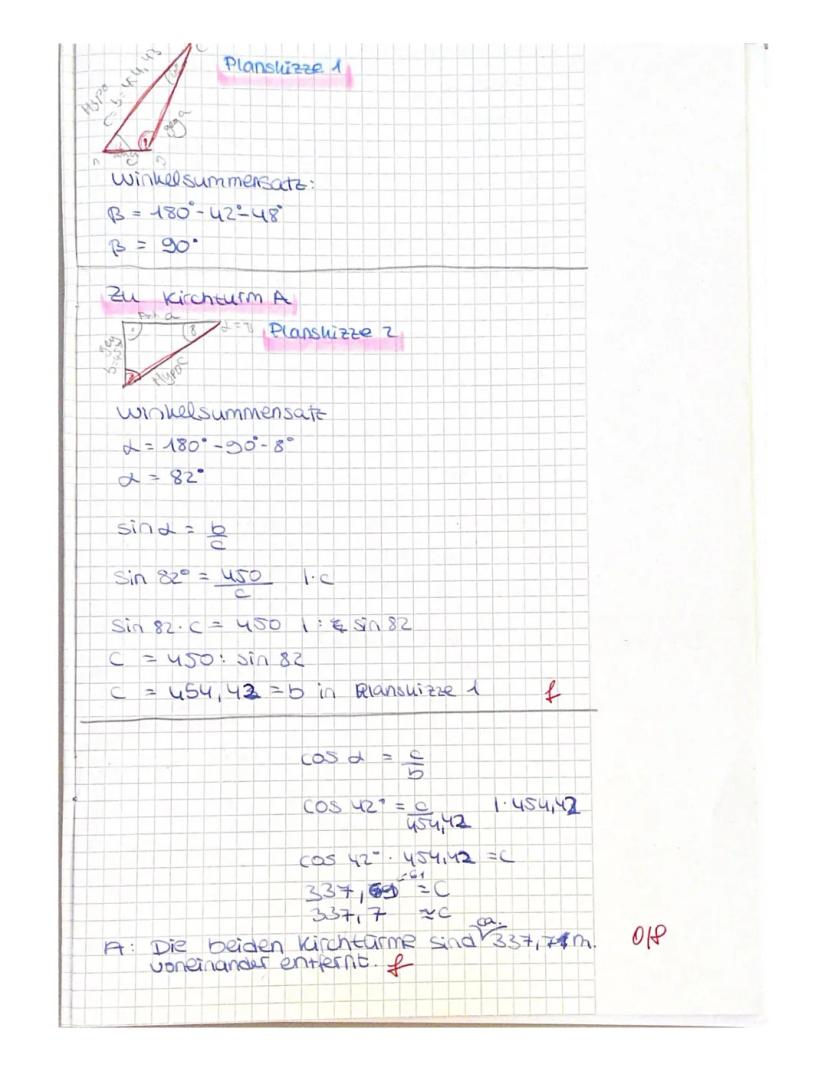 Planskizze 1
Hypo
c b = 454,43
geg a
Winkelsummensatz:
β = 180° - 42° - 48°
β = 90°
Zu Kirchturm A
Planskizze 2
Hypo c
Winkelsummensatz
α = 180° - 90° - 8°
α = 82°
sin α = b/c
sin 82° = 450/c | · c
sin 82 · c = 450 | : sin 82
c = 450 : sin 82
c = 454,42 = b in Planskizze 1 f
cos α = c/b
cos 42° = c/454,42 | · 454,42
cos 42° · 454,42 = c
337,69 = c
337,7 ≈ c
A: Die beiden Kirchtürme sind ca. 337,7 m. 0/8
voneinander entfernt. f